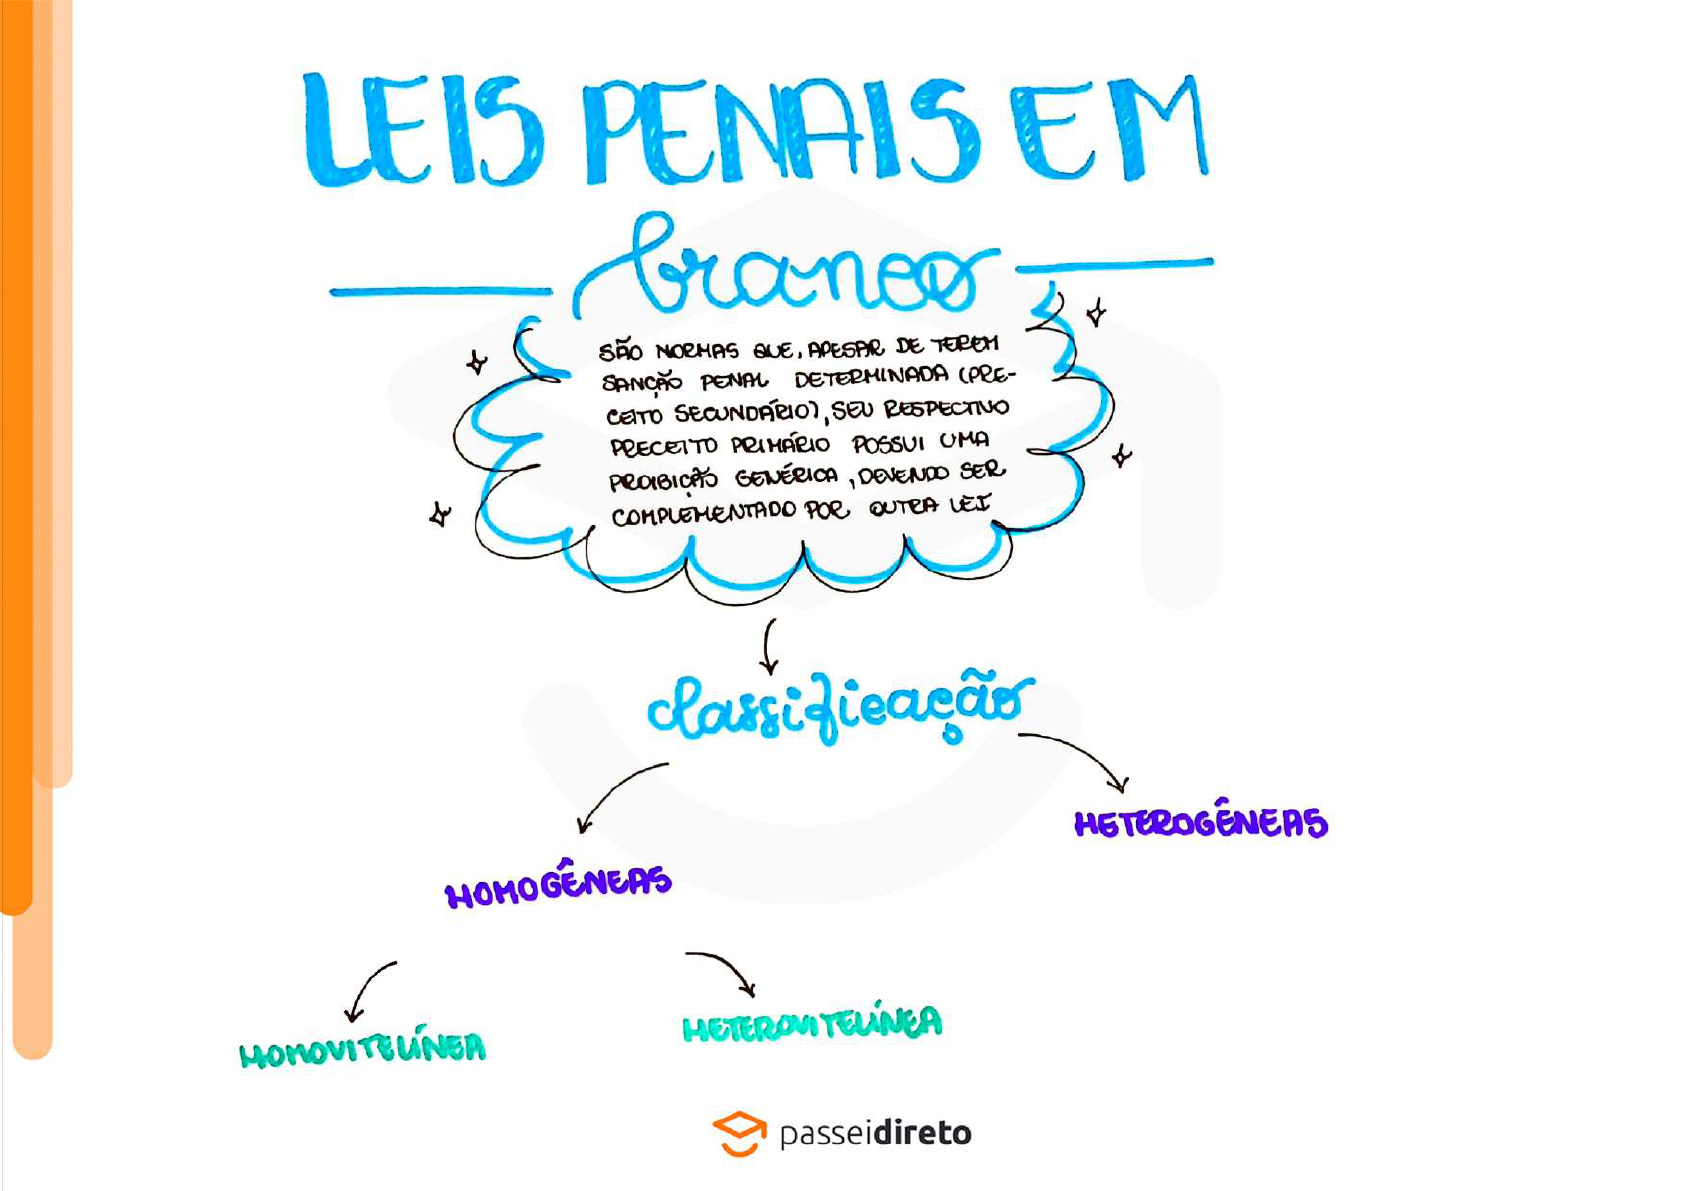 LEIS PENAIS EM
branco
SÃO NORMAS QUE, APESAR DE TEREM
SANÇÃO PENAL DETERMINADA (PRE-
CEITO SECUNDÁRIO), SEU RESPECTIVO
PRECEITO PRIMÁRIO POSSUI UMA
PROIBIÇÃO GENÉRICA, DEVENDO SER
COMPLEMENTADO POR OUTRA LEI
classificação
HETEROGÊNEAS
HOMOGÊNEAS
HOMOVITELÍNEA
HETEROVITELÍNEA
passeidireto